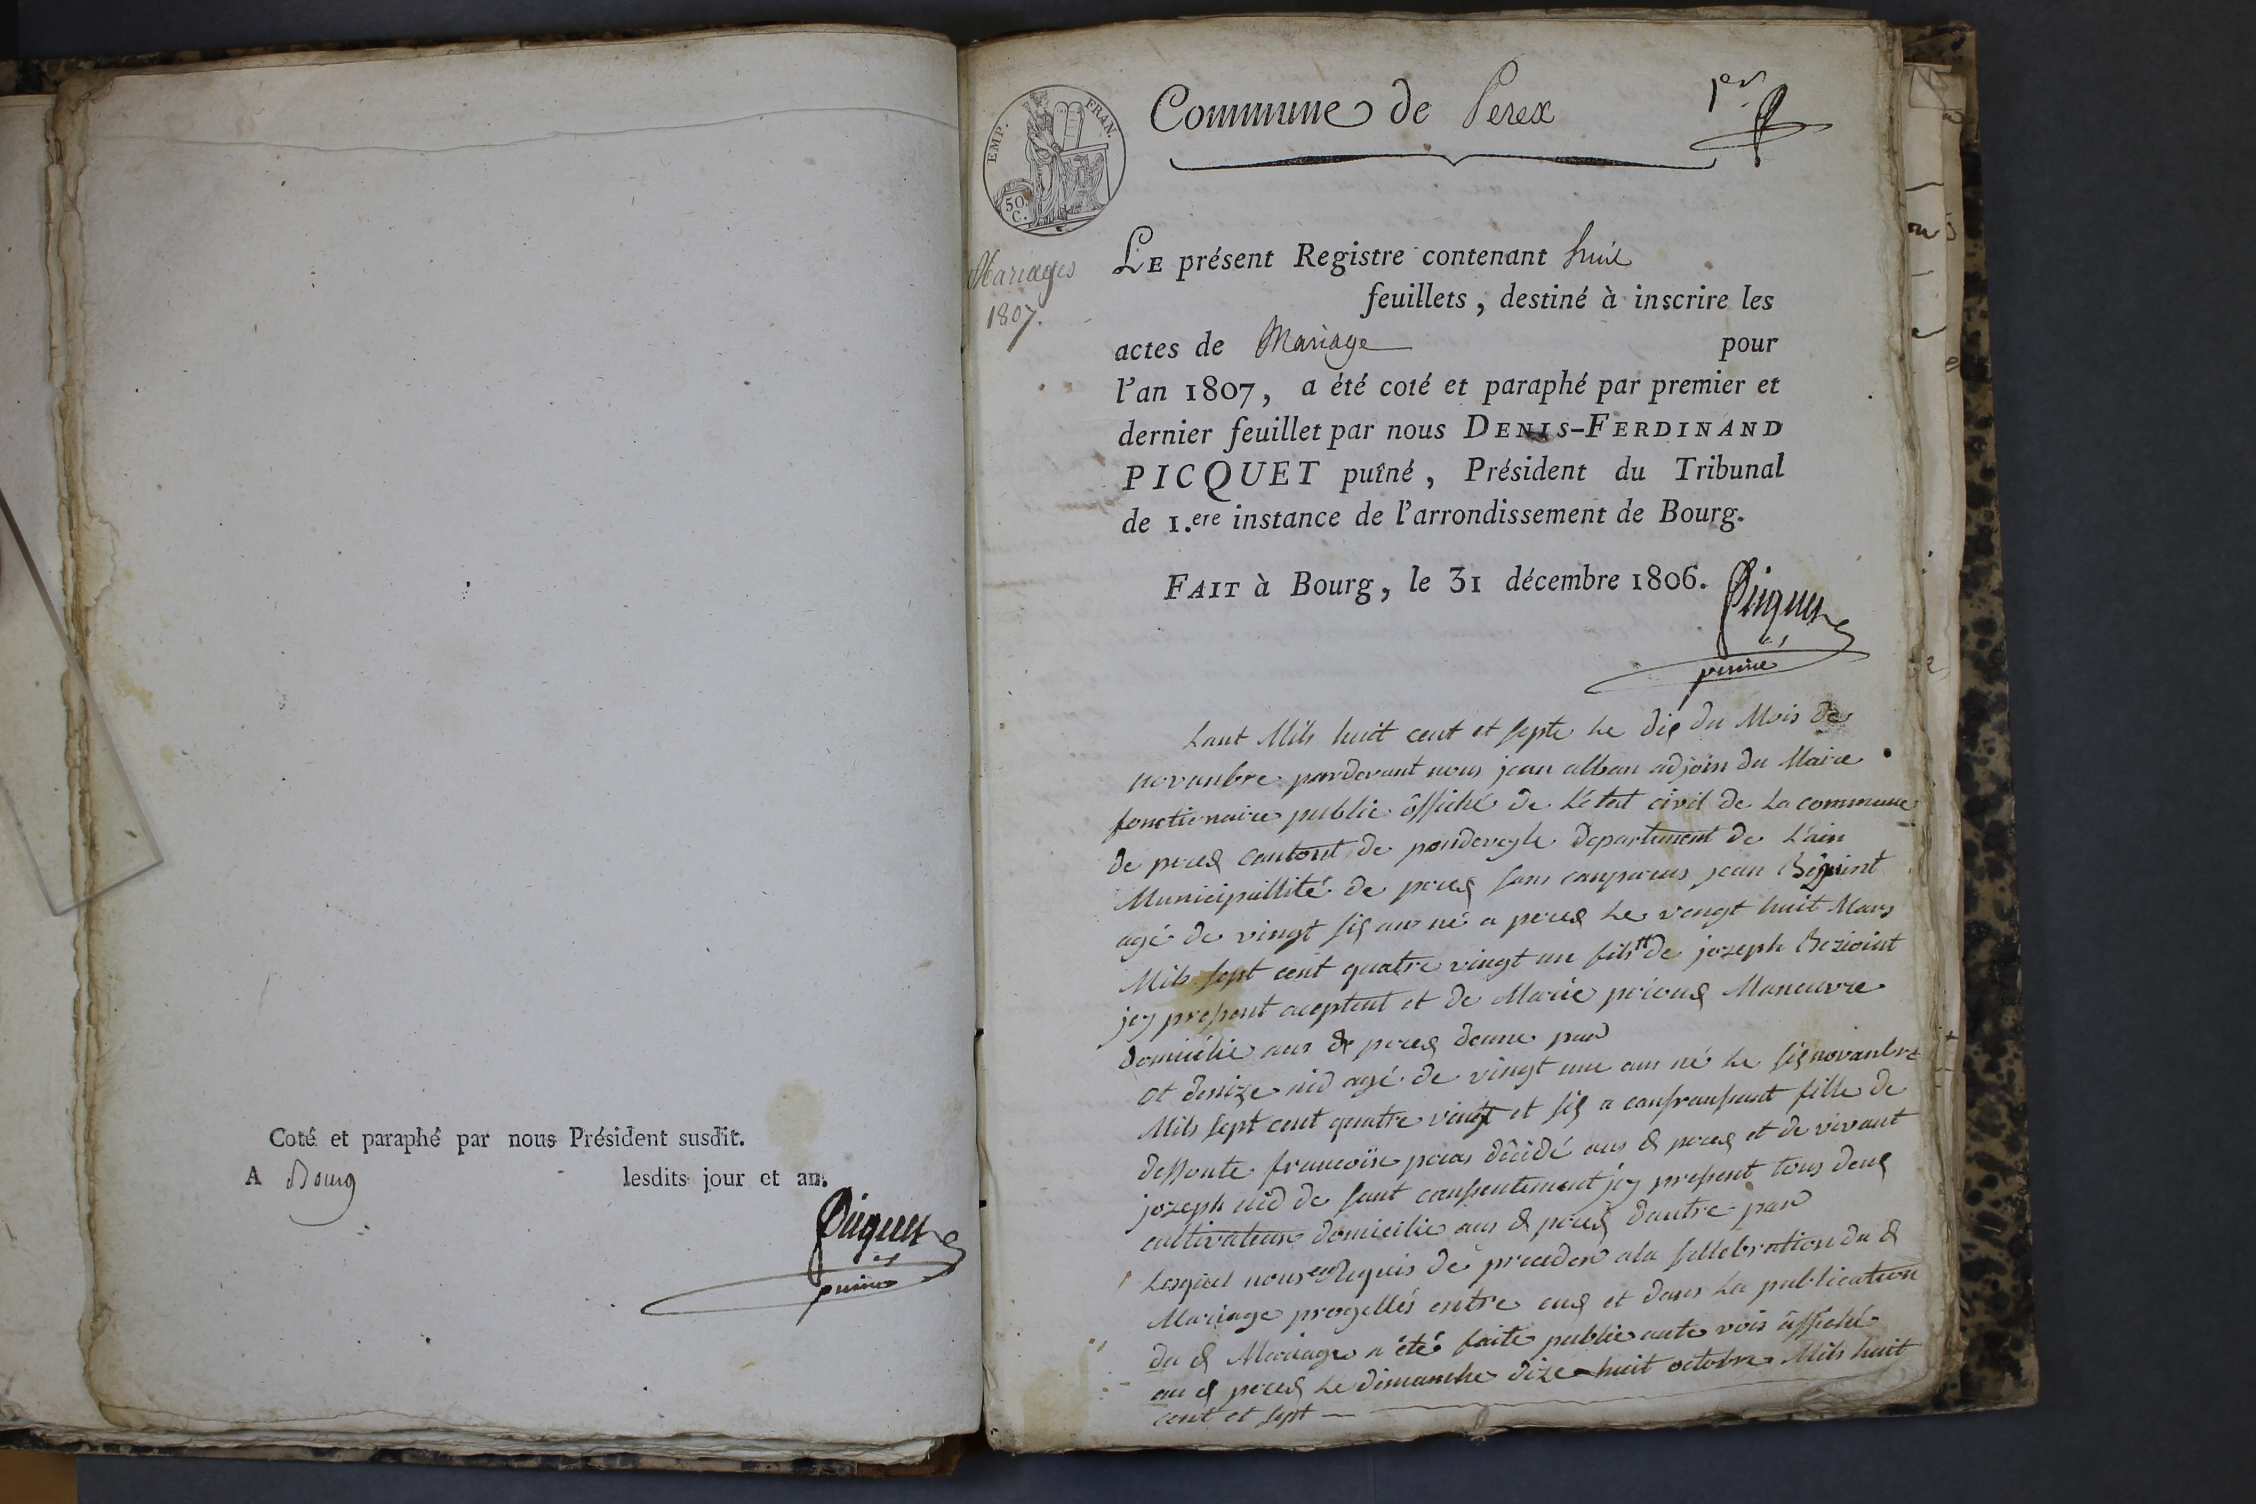 Coté et paraphé par nous Président susdit.
A Bourg lesdits jour et an.
Picquet
puiné
EMP. FRAN.
50 C.
Commune de Perex
1er
Mariages
1807.
LE présent Registre contenant huit
feuillets, destiné à inscrire les
actes de Mariage pour
l'an 1807, a été coté et paraphé par premier et
dernier feuillet par nous DENIS-FERDINAND
PICQUET puîné, Président du Tribunal
de 1.ere instance de l'arrondissement de Bourg.
FAIT à Bourg, le 31 décembre 1806.
Picquet
puiné
Lant Mils huit cent et septe le dix du Mois de
novanbre pardevant nous jean alban adjoin du Maire
fonctionaire public ôffichié de L'état civil de La commune
de perex cantont de pondeveyle departement de L'ain
Municipallité de perex sons conparus jean
agé de vingt six an né a perex Le vingt huit Mars
Mils sept cent quatre vingt un fils de jozeph
jcy present aceptent et de Marie Maneuvre
domicilié aus d perex deune par
et denize nid agé de vingt une ans né Le six novanbre
Mils sept cent quatre vingt et six a fille de
deffonte francoise décidé aus d perex et de vivant
jozeph nid de sont consentement jcy present tous deux
cultivateur domicilié aus d perex dautre par
Lesquel nous en requis de proceder ala sellebration du d
Mariage progellés entre eux et dons La publication
du d Mariage a été faite public aute vois âffiché
au d perex Le dimanche dize huit octobre Mils huit
cent et sept